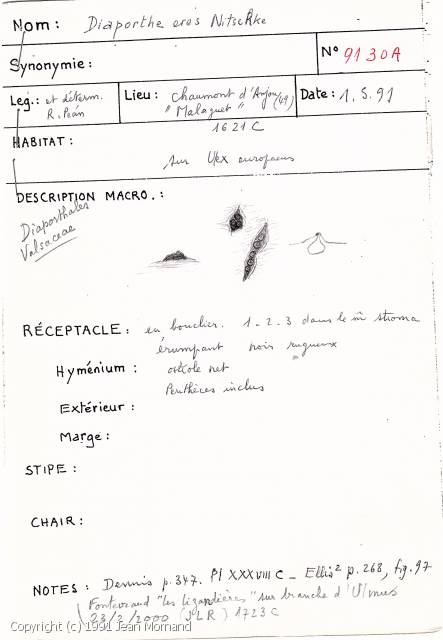 Nom : Diaporthe eres Nitschke
Synonymie :
N° 9130A
Leg. : et déterm.
R. Péan
Lieu : Chaumont d'Anjou (49)
"Malaguet"
Date : 1.5.91
1621C
HABITAT :
sur Ulex europaeus
DESCRIPTION MACRO. :
Diaporthales
Valsaceae
RÉCEPTACLE : en bouclier. 1-2-3 dans le m̂ stroma
érumpant noir rugueux
Hyménium : ostiole net
Périthèces inclus
Extérieur :
Marge :
STIPE :
CHAIR :
NOTES : Dennis p.347. Pl XXXVIII C _ Ellis² p.268, fig.97
(Fontevraud "les ligandières" sur branche d'Ulmus
23/2/2000 JLR) 1723C
Copyright (c) 1991 Jean Mornand